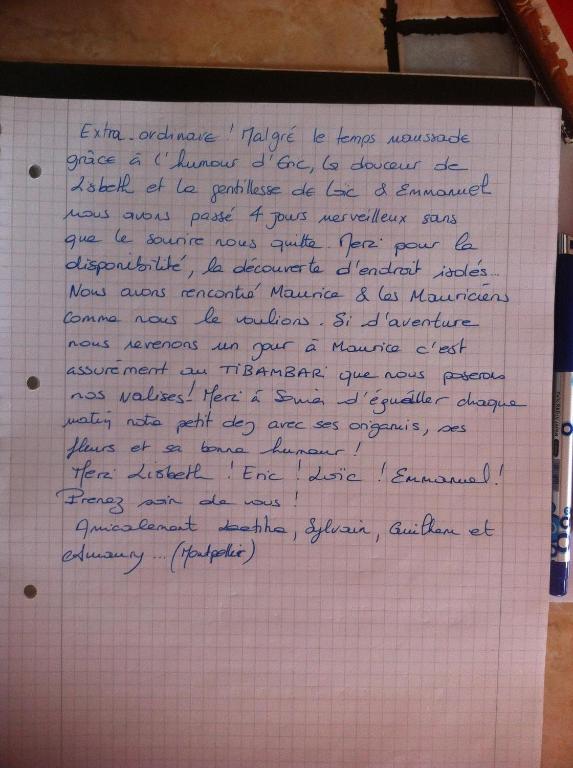 Extra-ordinaire ! Malgré le temps maussade
grâce à l'humour d'Eric, la douceur de
Lisbeth et la gentillesse de Loïc & Emmanuel
nous avons passé 4 jours merveilleux sans
que le sourire nous quitte. Merci pour la
disponibilité, la découverte d'endroit isolés...
Nous avons rencontré Maurice & les Mauriciens
comme nous le voulions. Si d'aventure
nous revenons un jour à Maurice c'est
assurément au TIBAMBAR que nous poserons
nos valises ! Merci à Sonia d'égueiller chaque
matin notre petit dej avec ses origamis, ses
fleurs et sa bonne humeur !
Merci Lisbeth ! Eric ! Loïc ! Emmanuel !
Prenez soin de vous !
Amicalement Laetitia, Sylvain, Guilhem et
Amaury ... (Montpellier)